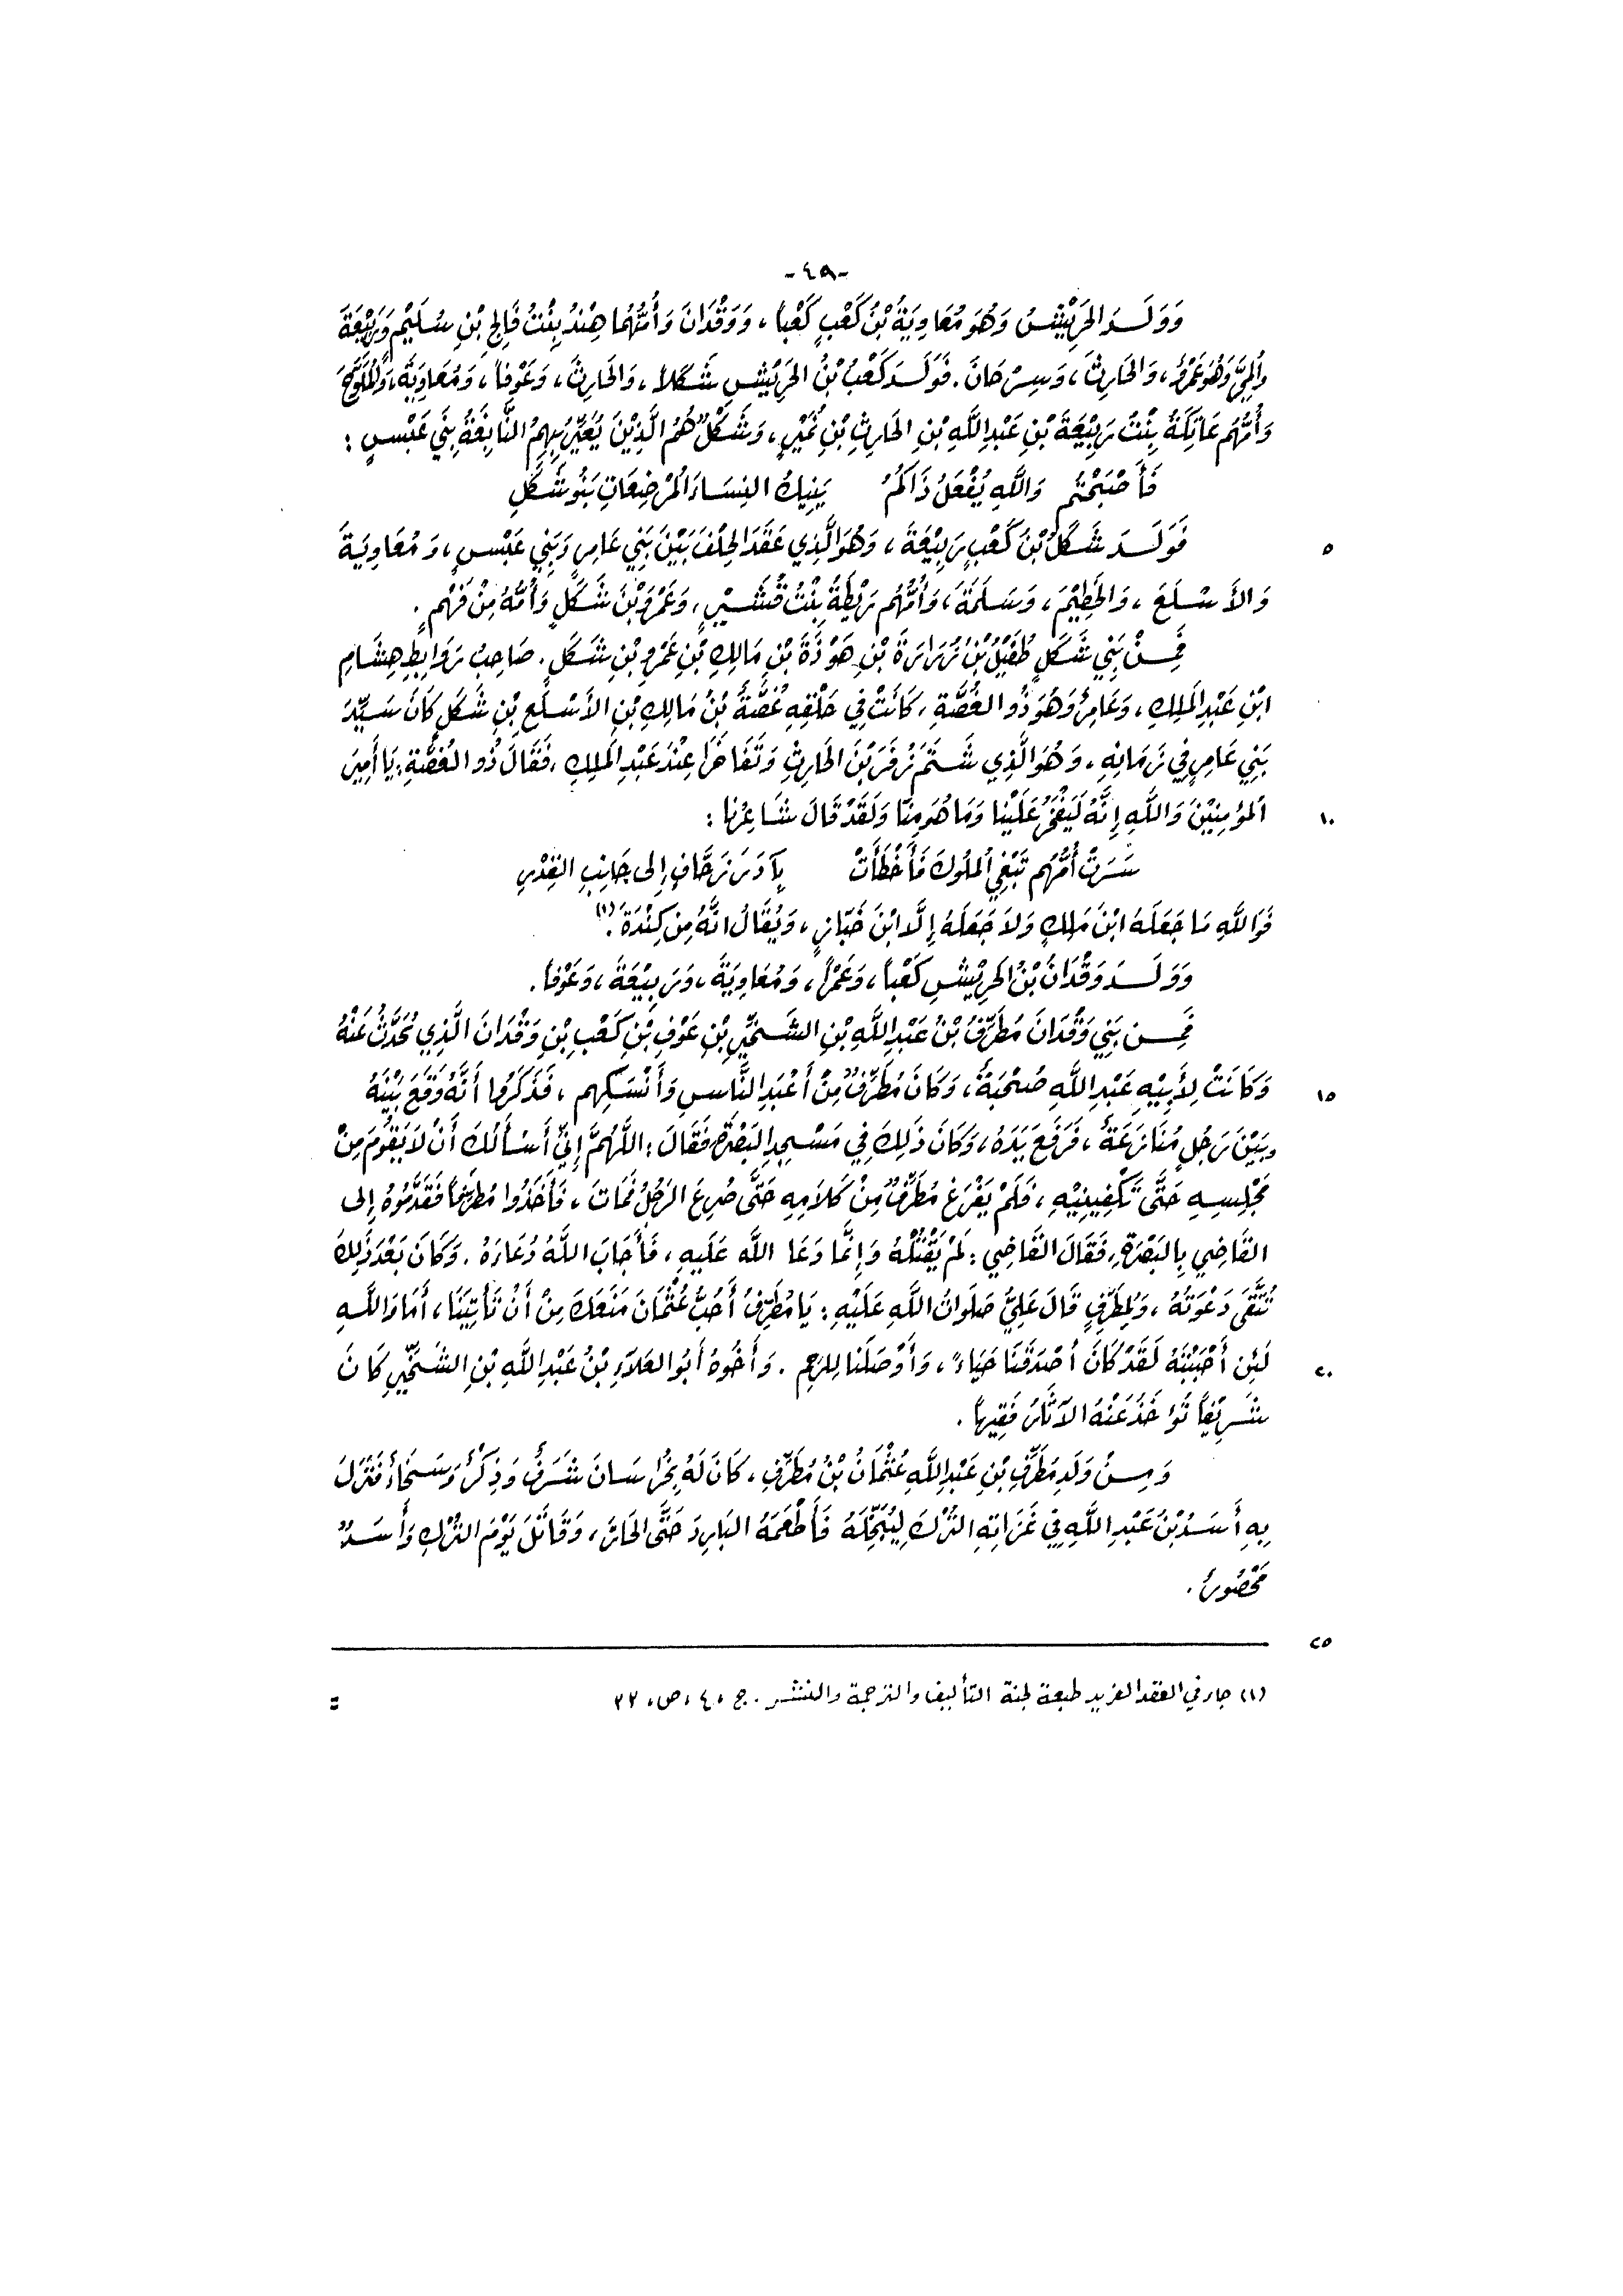 -٤٩-
وَوَلَـدَ الحَرِيْشُ وَهُوَ مُعَاوِيَةُ بْنُ كَعْبٍ كَعْباً ، وَوَقْدَانَ وَأُمُّهُما هِنْدُ بِنْتُ فَالِجِ بْنِ سُلَيْمٍ وَرَبِيْعَةَ
وَالمُِرَّ وَهُوَ عَمْرٌو ، وَالحَارِثَ ، وَسِرْحَانَ . فَوَلَـدَ كَعْبُ بْنُ الحَرِيْشِ شَكَلاً ، وَالحَارِثَ ، وَعَوْفاً ، وَمُعَاوِيَةَ ، وَالمُلَوَّحَ
وَأُمُّهُم عَاتِكَةُ بِنْتُ رَبِيْعَةَ بْنِ عَبْدِ اللَّهِ بْنِ الحَارِثِ بْنِ نُمَيْرٍ ، وَشَكَلٌ هُمُ الَّذِيْنَ يُعَيِّرُ بِهِمُ النَّابِغَةُ بَنِي عَبْسٍ :
فَأَصْبَحْتُم وَاللَّهِ يُفْعَلُ ذَاكُمُ يَنِيكُ النِسَاءَ المُرْضِعَاتِ بَنُو شَكَلِ
فَوَلَـدَ شَكَلُ بْنُ كَعْبٍ رَبِيْعَةَ ، وَهُوَ الَّذِي عَقَدَ الحِلْفَ بَيْنَ بَنِي عَامِرٍ وَبَنِي عَبْسٍ ، وَمُعَاوِيَةَ
٥
وَالأَسْلَعَ ، وَالحَطِيْمَ ، وَسَلَمَةَ ، وَأُمُّهُم رَيْطَةُ بِنْتُ قُشَيْرٍ ، وَعَمْرَو بْنَ شَكَلٍ وَأُمُّهُ مِنْ فَهْمٍ .
فَمِـنْ بَنِي شَكَلٍ طُفَيْلُ بْنُ زُرَارَةَ بْنِ هَوْذَةَ بْنِ مَالِكِ بْنِ عَمْرِو بْنِ شَكَلٍ . صَاحِبُ رَوَابِطِ هِشَامِ
ابْنِ عَبْدِ المَلِكِ ، وَعَامِرٌ وَهُوَ ذُو الغُصَّةِ ، كَانَتْ فِي حَلْقِهِ غُصَّةٌ بْنُ مَالِكِ بْنِ الأَسْلَعِ بْنِ شَكَلٍ كَانَ سَيِّدَ
بَنِي عَامِرٍ فِي زَمَانِهِ ، وَهُوَ الَّذِي شَتَمَ زُفَرَ بْنَ الحَارِثِ وَتَفَاخَرَا عِنْدَ عَبْدِ المَلِكِ ، فَقَالَ ذُو الغُصَّةِ : يَا أَمِيْرَ
المُؤمِنِيْنَ وَاللَّهِ إِنَّهُ لَيَفْخَرُ عَلَيْنا وَمَا هُوَ مِنَّا وَلَقَدْ قَالَ شَاعِرُنا :
١٠
سَرَتْ أُمُّهُم تَبْغِي المُلُوكَ فَأَخْطَأَتْ بِآدَرَ زَحَّافٍ إِلى جَانِبِ القِدْرِ
فَوَاللَّهِ مَا جَعَلَهُ ابْنَ مَلِكٍ وَلاَ جَعَلَهُ إِلَّا ابْنَ خَبَّازٍ ، وَيُقَالُ انَّهُ مِن كِنْدَةَ .(١)
وَوَلَـدَ وَقْدَانُ بْنُ الحَرِيْشِ كَعْباً ، وَعَمْراً ، وَمُعَاوِيَةَ ، وَرَبِيْعَةَ ، وَعَوْفاً .
فَمِـن بَنِي وَقْدَانَ مُطَرِّفُ بْنُ عَبْدِ اللَّهِ بْنِ الشِّخِّيْرِ بْنِ عَوْفِ بْنِ كَعْبِ بْنِ وَقْدَانَ الَّذِي يُحَدَّثُ عَنْهُ
وَكَانَتْ لِأَبِيْهِ عَبْدِ اللَّهِ صُحْبَةٌ ، وَكَانَ مُطَرِّفٌ مِنْ أَعْبَدِ النَّاسِ وَأَنْسَكِهِم ، فَذَكَرُوا أَنَّهُ وَقَعَ بَيْنَهُ
١٥
وَبَيْنَ رَجُلٍ مُنَازَعَةٌ ، فَرَفَعَ يَدَهُ ، وَكَانَ ذَلِكَ فِي مَسْجِدِ البَصْرَةِ فَقَالَ : اللَّهُمَّ إِنِّي أَسْأَلُكَ أَنْ لاَ يَقُومَ مِنْ
مَجْلِسِهِ حَتَّى تَكْفِينِيْهِ ، فَلَمْ يَفْرَغْ مُطَرِّفٌ مِنْ كَلاَمِهِ حَتَّى صُرِعَ الرَجُلُ فَمَاتَ ، فَأَخَذُوا مُطَرِّفاً فَقَدَّمُوهُ إِلى
القَاضِي بِالبَصْرَةِ ، فَقَالَ القَاضِي : لَمْ يَقْتُلْهُ وَإِنَّما دَعَا اللَّه عَلَيهِ ، فَأَجَابَ اللَّهُ دُعَاءَهُ . وَكَانَ بَعْدَ ذَلِكَ
تُتَّقَى دَعْوَتُهُ ، وَلِمُطَرِّفٍ قَالَ عَلِيٌّ صَلَوَاتُ اللَّهِ عَلَيْهِ : يَا مُطَرِّفُ أَحُبُّ عُثْمَانَ مَنَعَكَ مِنْ أَنْ تَأْتِيَنَا ، أَمَا وَاللَّهِ
لَئِن أَحْبَبْتَهُ لَقَدْ كَانَ أَصْدَقَنَا حَيَاءً ، وَأَوْصَلَنا لِلرَحِمِ . وَأَخُوهُ أَبُو العَلاَءِ بْنُ عَبْدِ اللَّهِ بْنِ الشِّخِّيْرِ كَانَ
٢٠
شَرِيْفاً تُؤخَذُ عَنْهُ الآثَارُ فَقِيهاً .
وَمِـنْ وَلَدِ مُطَرِّفِ بْنِ عَبْدِ اللَّهِ عُثْمَانُ بْنُ مُطَرِّفٍ ، كَانَ لَهُ بِخُرَاسَانَ شَرَفٌ وَذِكْرٌ وَسَخَاءٌ فَنَزَلَ
بِهِ أَسَدُ بْنُ عَبْدِ اللَّهِ فِي غَزَاتِهِ التُرْكَ لِيُبَخِّلَهُ فَأَطْعَمَهُ البَارِدَ حَتَّى الحَارَّ ، وَقَاتَلَ يَوْمَ التُرْكِ وَأَسَدٌ
مَحْصُورٌ .
٢٥
(١) جاء في العقد الفريد طبعة لجنة التأليف والترجمة والنشر . ج ، ٤ ، ص ، ٣٣
=